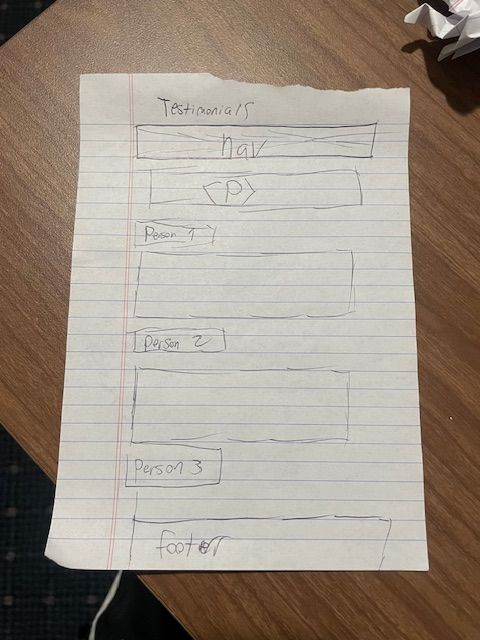 Testimonials
nav
<P>
Person 1
Person 2
Person 3
footer